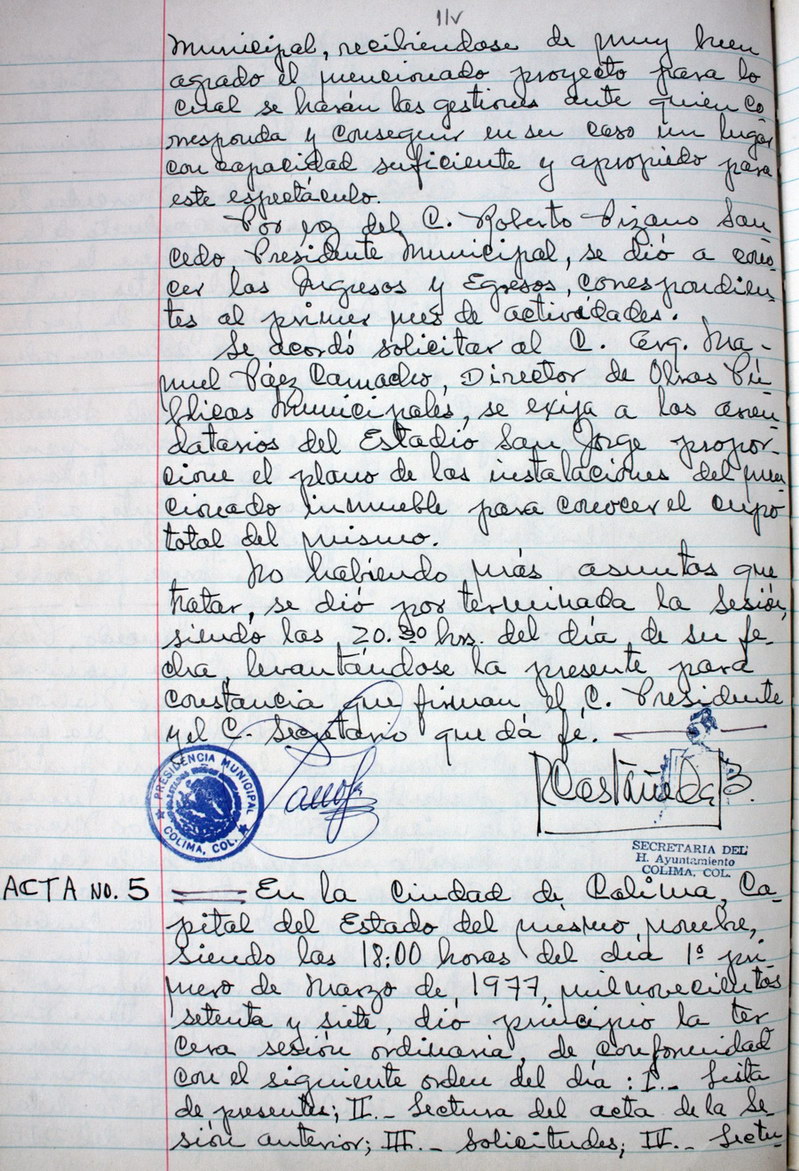 11v
Municipal, recibiéndose de muy buen
agrado el mencionado proyecto para lo
cual se harán las gestiones ante quien co
rresponda y conseguir en su caso un lugar
con capacidad suficiente y apropiado para
este espectáculo.
Por voz del C. Roberto Pizano Sau-
cedo Presidente Municipal, se dió a cono-
cer los Ingresos y Egresos, correspondien-
tes al primer mes de actividades.
Se acordó solicitar al C. Arq. Ma-
nuel Páez Camacho, Director de Obras Pú-
blicas Municipales, se exija a los arren-
datarios del Estadio San Jorge propor-
cione el plano de las instalaciones del men
cionado inmueble para conocer el cupo
total del mismo.
No habiendo más asuntos que
tratar, se dió por terminada la Sesión,
siendo las 20.30 hrs. del día de su fe-
cha, levantándose la presente para
constancia que firman el C. Presidente
y el C. Secretario que dá fé.
PRESIDENCIA MUNICIPAL
COLIMA, COL.
RCastañeda B.
SECRETARIA DEL
H. Ayuntamiento
COLIMA, COL.
ACTA No. 5 En la Ciudad de Colima, Ca-
pital del Estado del mismo nombre,
siendo las 18:00 horas del día 1º pri-
mero de Marzo de 1977, mil novecientos
setenta y siete, dió principio la ter
cera sesión ordinaria, de conformidad
con el siguiente orden del día: I.- Lista
de presentes; II.- Lectura del acta de la Se
sión anterior; III.- Solicitudes; IV.- Lectu-